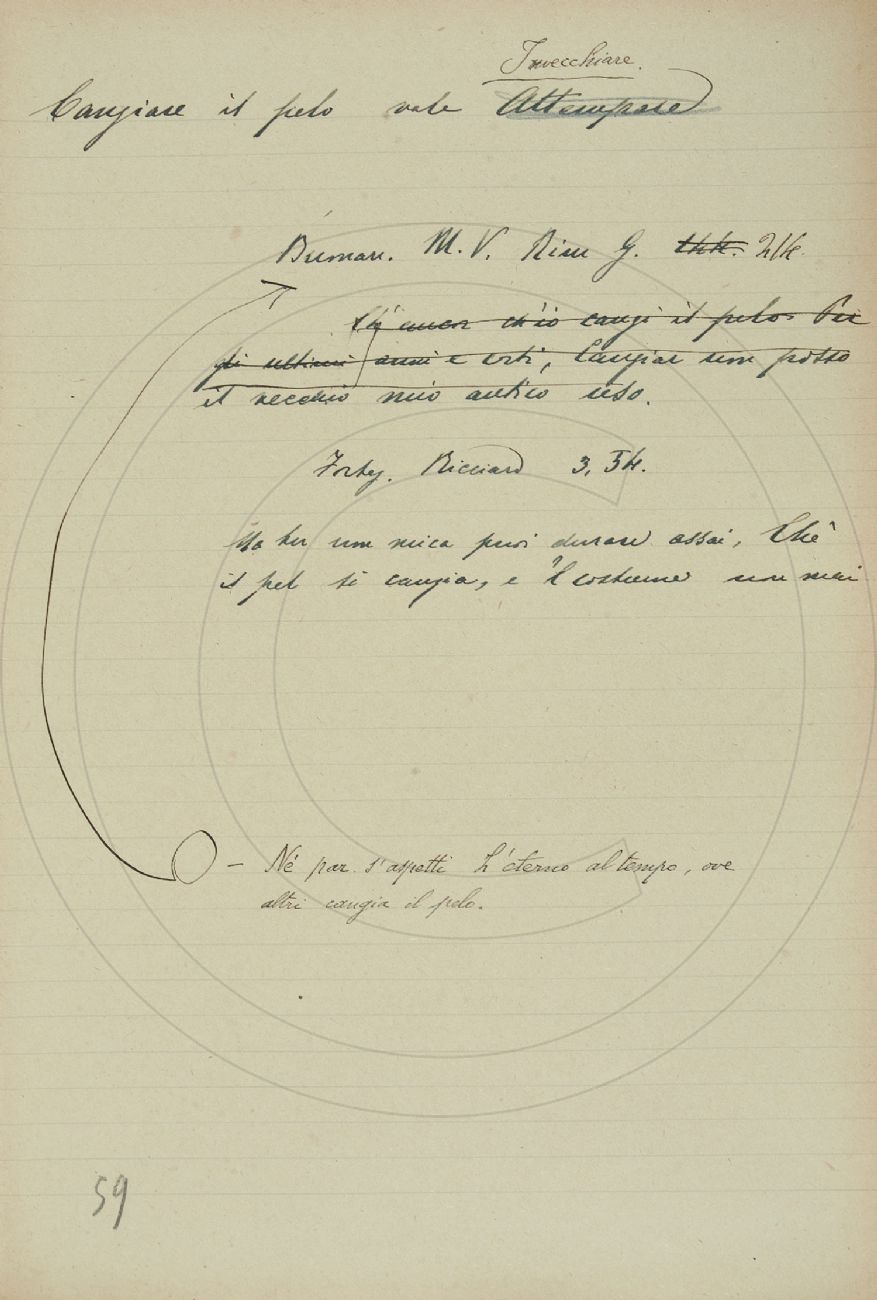 Invecchiare.
Cangiare il pelo vale Attempare
Buonarr. M. V. Rim G. 214.
Ch'ancor ch'io cangi il pelo Per
gli ultimi anni e corti, Cangiar non posso
il vecchio mio antico uso.
Forteg. Ricciard 3, 54.
Ma tu non mica puoi durare assai, Chè
il pel si cangia, e 'l costume non mai
— Nè par s'aspetti L'eterno al tempo, ove
altri cangia il pelo.
59